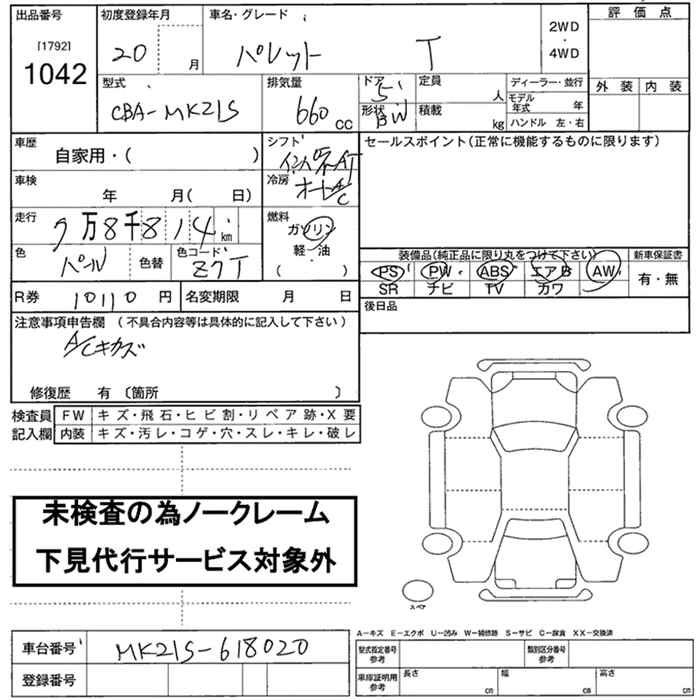 出品番号 初度登録年月 車名・グレード 評価点
[1792] 1042 20 月 パレット T 2WD・4WD
型式 排気量 ドア 定員 ディーラー・並行 外装 内装
CBA-MK21S 660 CC 5 人 モデル年式 年
形状 BW 積載 kg ハンドル 左・右
車歴 シフト セールスポイント(正常に機能するものに限ります)
自家用・( ) インパネAT
車検 冷房
年 月( 日) オートAC
走行 燃料
7万8千814km ガソリン
色 色替 色コード 軽・油 装備品(純正品に限り丸をつけて下さい) 新車保証書
パール Z7T ( ) PS PW ABS エアB AW 有・無
SR ナビ TV カワ
R券 10110円 名変期限 月 日 後日品
注意事項申告欄 (不具合内容等は具体的に記入して下さい)
A/Cキカズ
修復歴 有 〔箇所 〕
検査員 FW キズ・飛石・ヒビ割・リペア跡・X要
記入欄 内装 キズ・汚レ・コゲ・穴・スレ・キレ・破レ
未検査の為ノークレーム
下見代行サービス対象外
スペア
A-キズ E-エクボ U-凹み W-補修跡 S-サビ C-腐食 XX-交換済
車台番号 MK21S-618020 型式指定番号 参考 類別区分番号 参考
登録番号 車庫証明用 参考 長さ cm 幅 cm 高さ cm